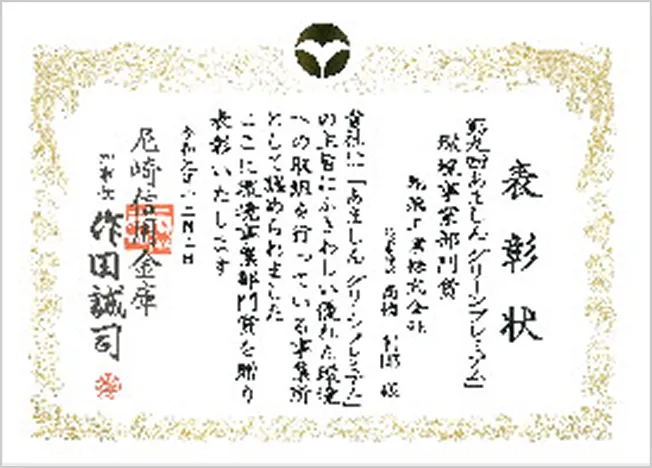 表彰状
第九回「あましんグリーンプレミアム」
環境事業部門賞
工業株式会社
高橋 様
貴社は「あましんグリーンプレミアム」
の主旨にふさわしい優れた環境
への取組を行っている事業所
として認められました
ここに環境事業部門賞を贈り
表彰いたします
令和元年十二月 日
尼崎信用金庫
理事長 作田誠司